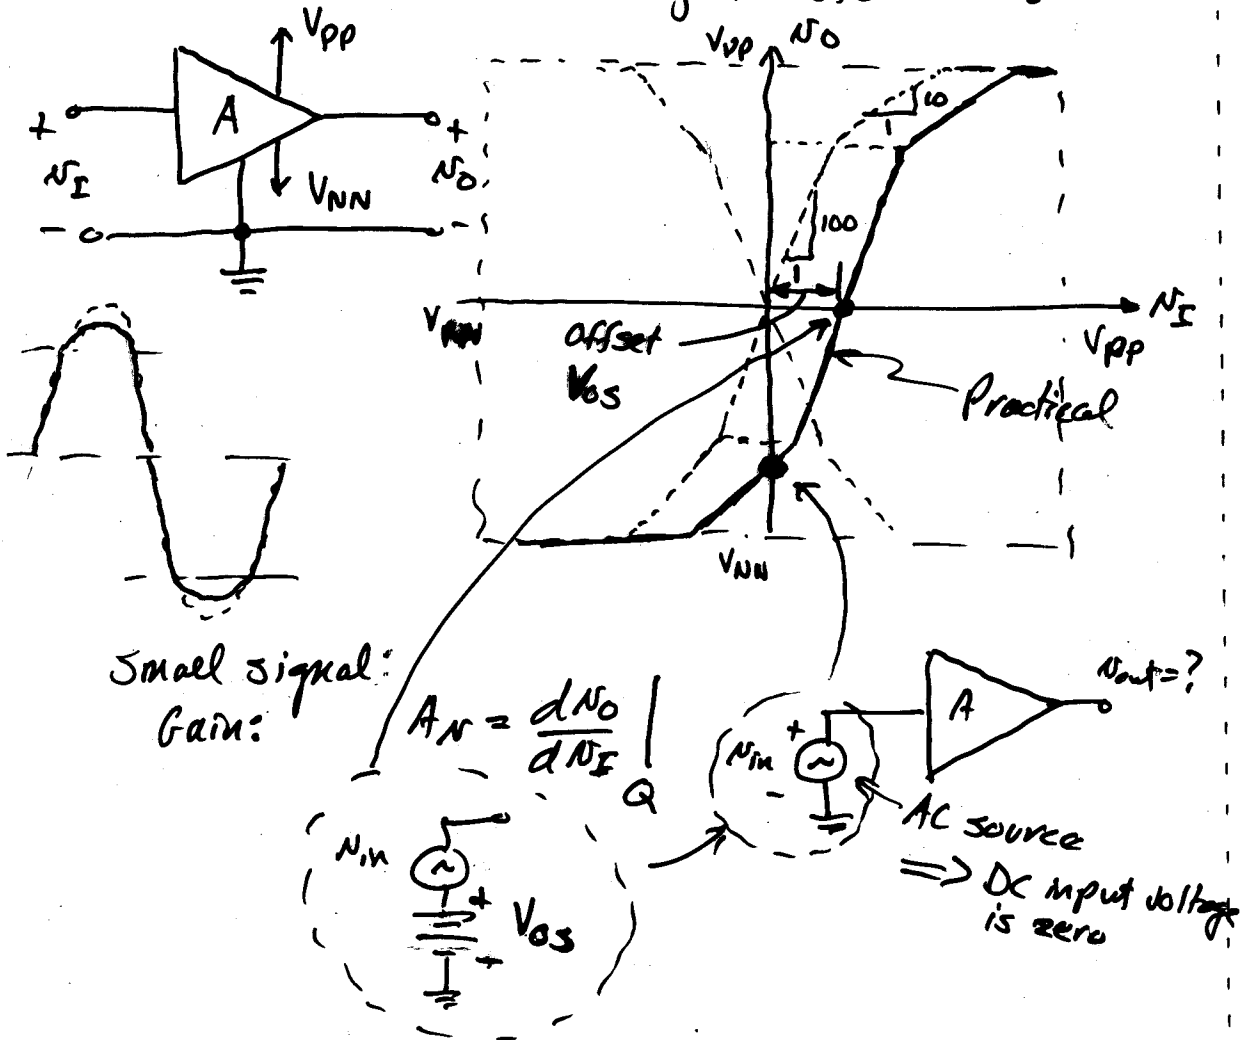 V_PP
A
+
v_I
-
V_NN
+
v_O
-
V_PP
v_O
10
1
100
1
v_I
V_PP
offset
V_OS
Practical
V_NN
Small signal:
Gain:
A_v = dv_O / dv_I |_Q
v_in
+
-
A
v_out=?
AC source
⇒ DC input voltage
is zero
v_in
+
V_OS
-